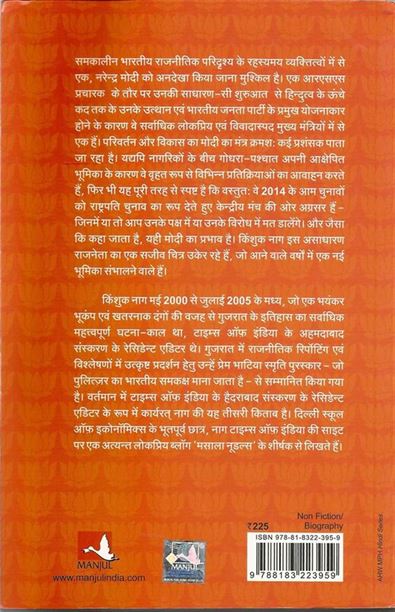 समकालीन भारतीय राजनीतिक परिदृश्य के रहस्यमय व्यक्तित्वों में से
एक, नरेन्द्र मोदी को अनदेखा किया जाना मुश्किल है। एक आरएसएस
प्रचारक के तौर पर उनकी साधारण-सी शुरुआत से हिन्दुत्व के ऊंचे
कद तक के उनके उत्थान एवं भारतीय जनता पार्टी के प्रमुख योजनाकार
होने के कारण वे सर्वाधिक लोकप्रिय एवं विवादास्पद मुख्य मंत्रियों में से
एक हैं। परिवर्तन और विकास का मोदी का मंत्र क्रमश: कई प्रशंसक पाता
जा रहा है। यद्यपि नागरिकों के बीच गोधरा-पश्चात अपनी आक्षेपित
भूमिका के कारण वे वृहत रूप से विभिन्न प्रतिक्रियाओं का आवाहन करते
हैं, फिर भी यह पूरी तरह से स्पष्ट है कि वस्तुत: वे 2014 के आम चुनावों
को राष्ट्रपति चुनाव का रूप देते हुए केन्द्रीय मंच की ओर अग्रसर हैं –
जिनमें या तो आप उनके पक्ष में या उनके विरोध में मत डालेंगे। और जैसा
कि कहा जाता है, यही मोदी का प्रभाव है। किंशुक नाग इस असाधारण
राजनेता का एक सजीव चित्र उकेर रहे हैं, जो आने वाले वर्षों में एक नई
भूमिका संभालने वाले हैं।
किंशुक नाग मई 2000 से जुलाई 2005 के मध्य, जो एक भयंकर
भूकंप एवं खतरनाक दंगों की वजह से गुजरात के इतिहास का सर्वाधिक
महत्त्वपूर्ण घटना-काल था, टाइम्स ऑफ इंडिया के अहमदाबाद
संस्करण के रेसिडेंट एडिटर थे। गुजरात में राजनीतिक रिपोर्टिंग एवं
विश्लेषणों में उत्कृष्ट प्रदर्शन हेतु उन्हें प्रेम भाटिया स्मृति पुरस्कार – जो
पुलित्ज़र का भारतीय समकक्ष माना जाता है – से सम्मानित किया गया
है। वर्तमान में टाइम्स ऑफ इंडिया के हैदराबाद संस्करण के रेसिडेंट
एडिटर के रूप में कार्यरत् नाग की यह तीसरी किताब है। दिल्ली स्कूल
ऑफ इकोनॉमिक्स के भूतपूर्व छात्र, नाग टाइम्स ऑफ इंडिया की साइट
पर एक अत्यन्त लोकप्रिय ब्लॉग 'मसाला नूडल्स' के शीर्षक से लिखते हैं।
Non Fiction/
Biography
₹225
ISBN 978-81-8322-395-9
9 788183 223959
MANJUL
www.manjulindia.com
MANJUL